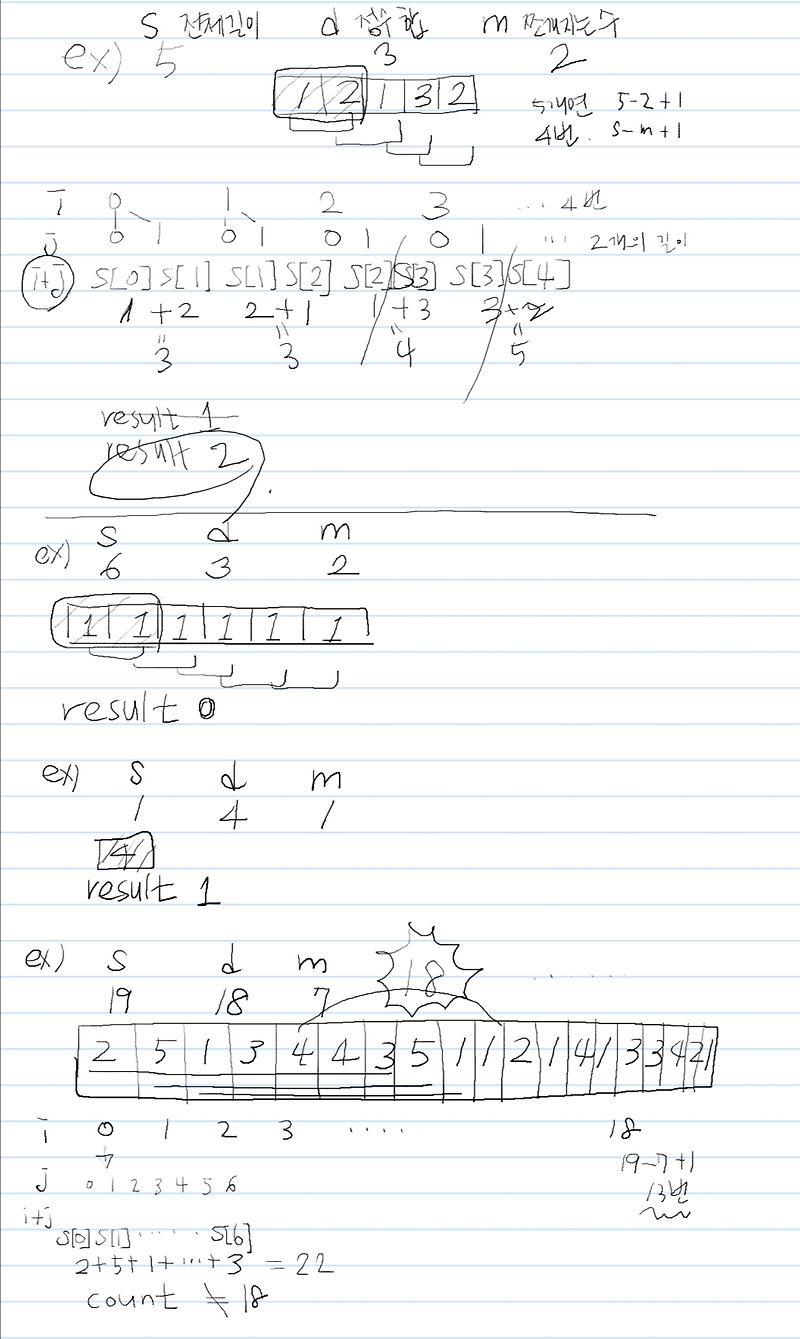 S 전체길이 d 점수합 m 쪼개지는수
ex) 5 3 2
1 2 1 3 2
5개면 5-2+1
4번. s-m+1
i 0 1 2 3 ... 4번
j 0 1 0 1 0 1 0 1 ... 2개의 길이
i+j S[0] S[1] S[1] S[2] S[2] S[3] S[3] S[4]
1 + 2 2 + 1 1 + 3 3 + 2
= = = =
3 3 4 5
result 1
result 2
s d m
ex) 6 3 2
1 1 1 1 1 1
result 0
ex) s d m
1 4 1
4
result 1
ex) s d m
19 18 7
18
2 5 1 3 4 4 3 5 1 1 2 1 4 1 3 3 4 2 1
i 0 1 2 3 ..... 18
19-7+1
j 0 1 2 3 4 5 6
13번
i+j
S[0] S[1] ..... S[6]
2+5+1+...+3 = 22
count ≠ 18